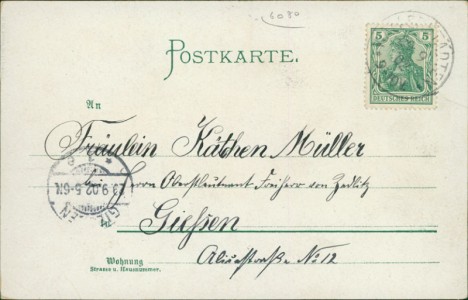 6030
POSTKARTE.
5
DEUTSCHES REICH
An
Fräulein Käthchen Müller
bei Herrn Oberstleutnant Freiherr von Zedlitz
GIESSEN
23.9.02.5-6N
in Giessen
Wohnung
Strasse u. Hausnummer.
Alicestraße No 12